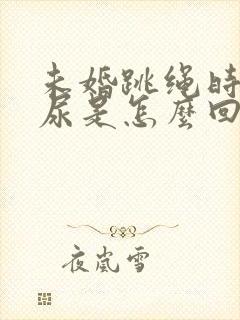 未婚跳绳时
尿是怎麼回
夜岚雪